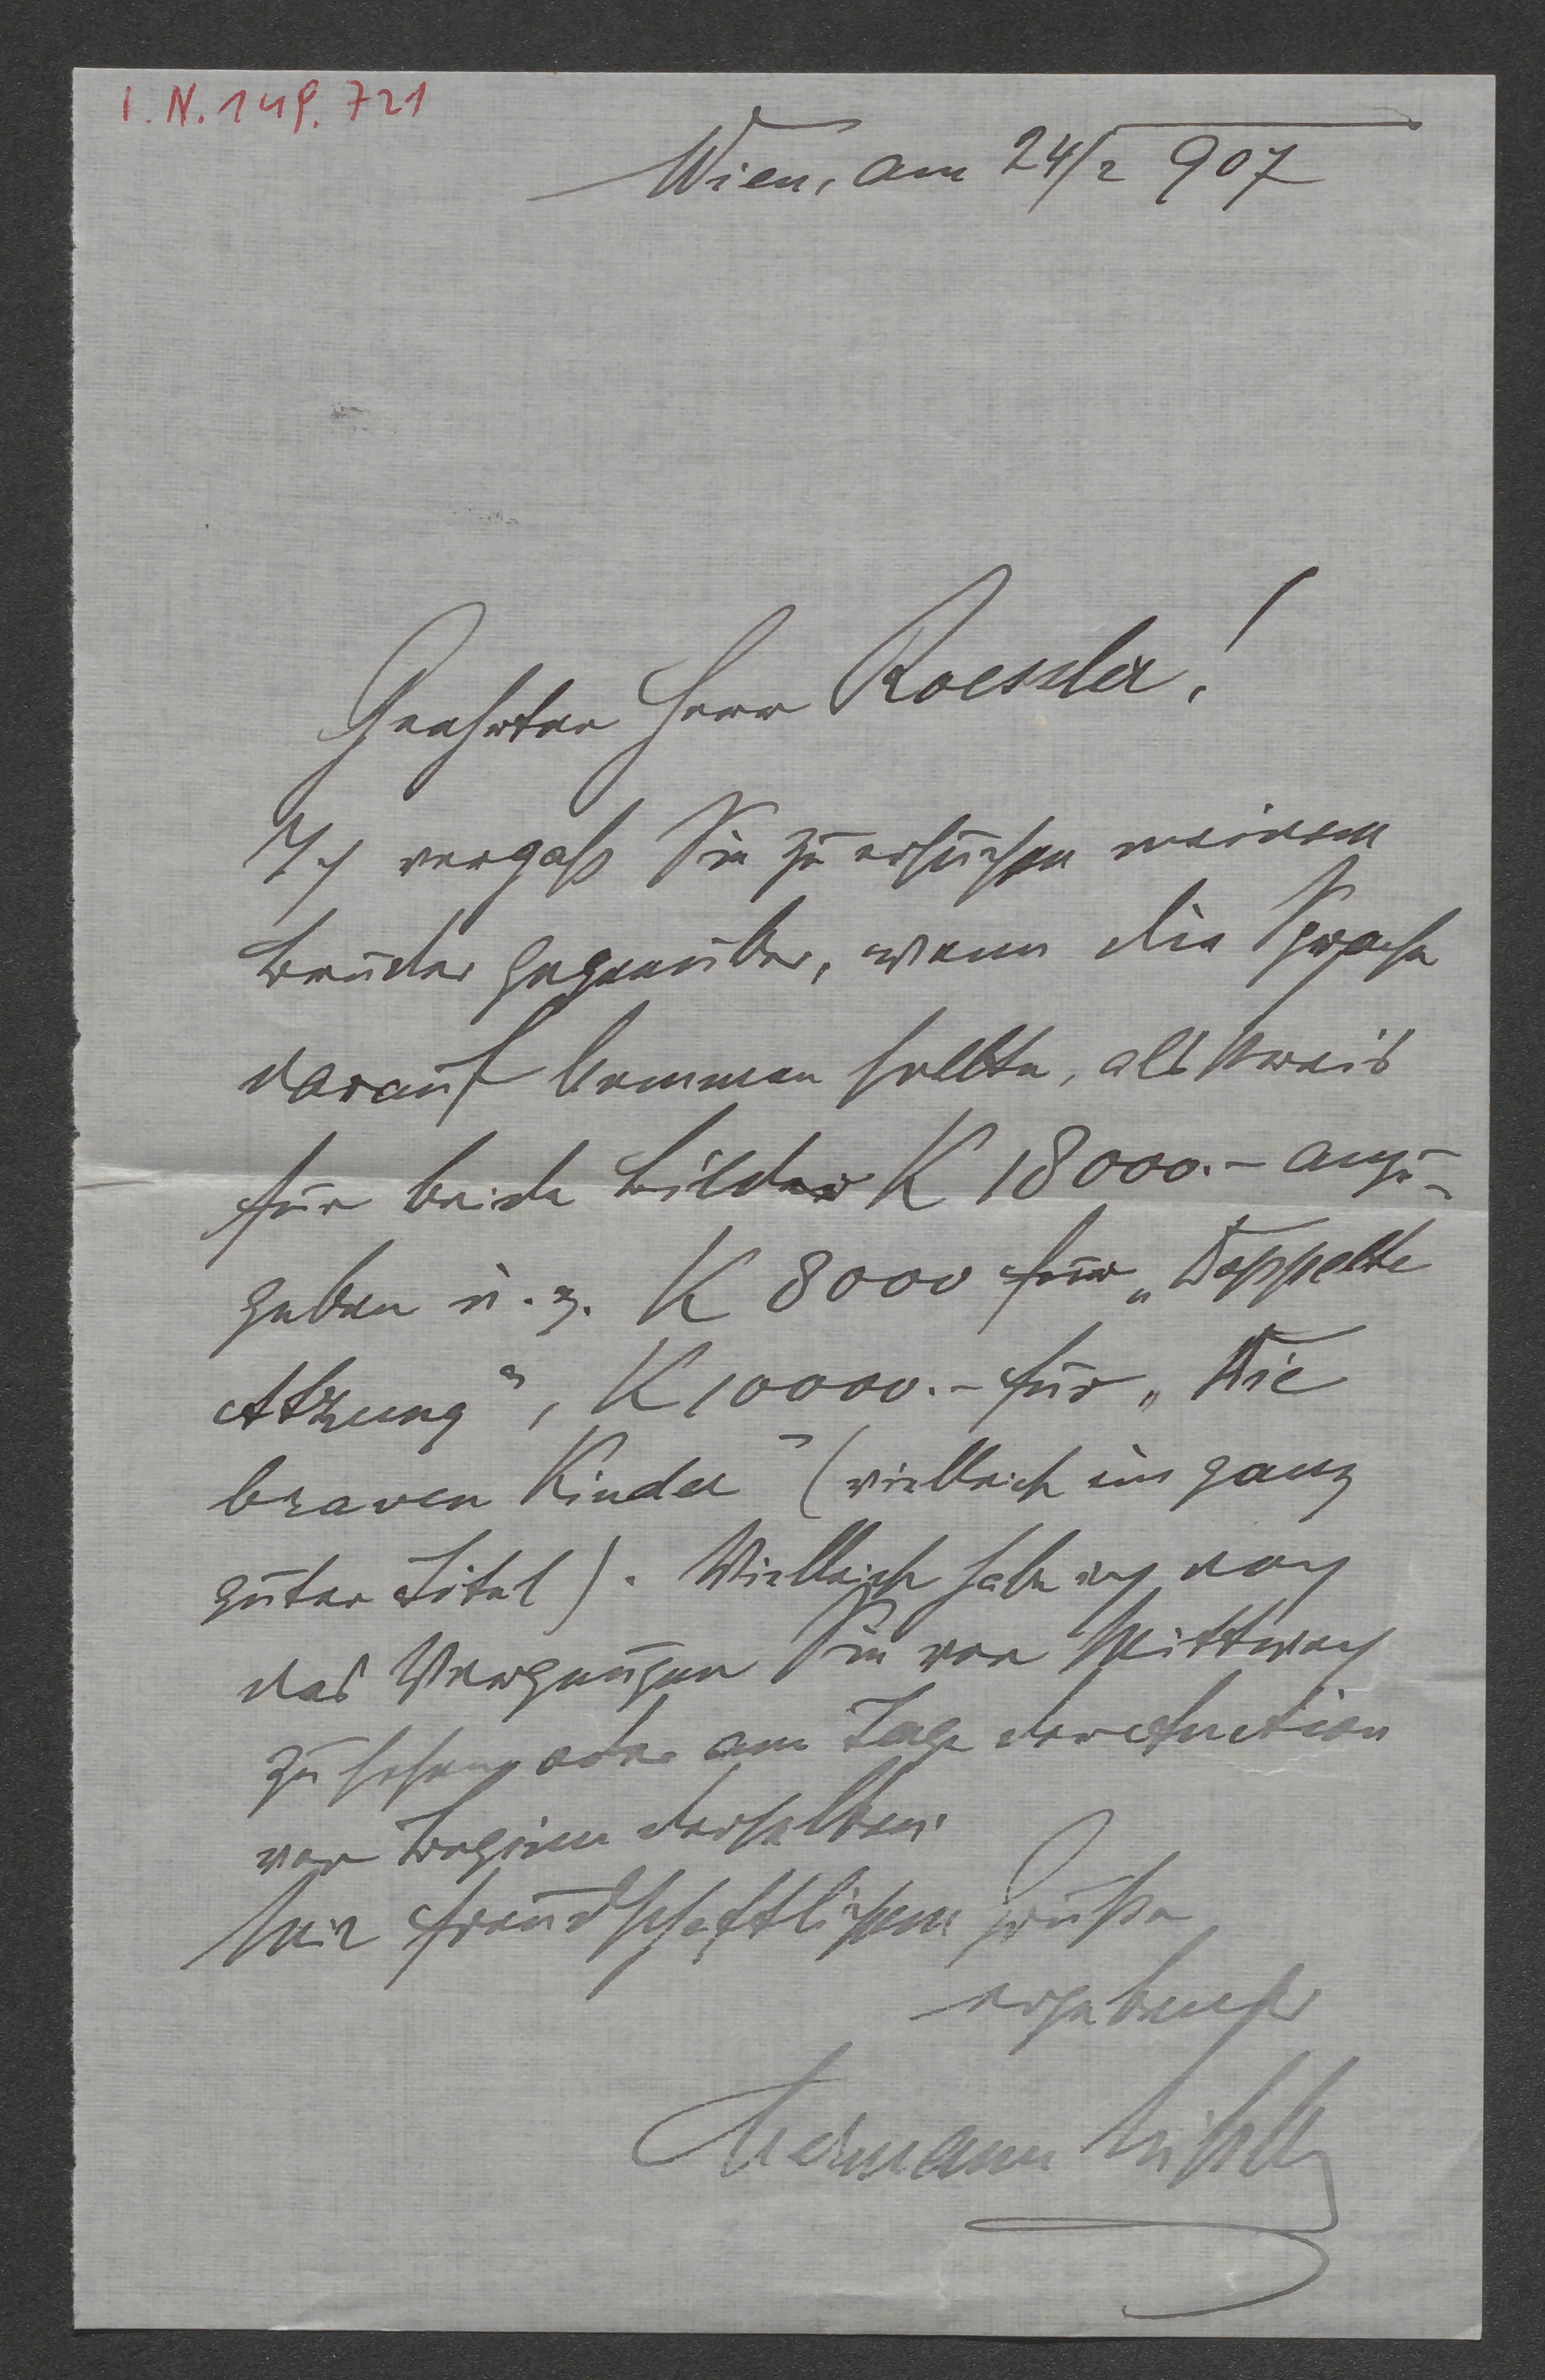 I. N. 149.721
Wien, am 24/2 907
Geehrter Herr Roessler!
Ich vergaß Sie zu ersuchen meinem
Bruder gegenüber, wenn die Sprache
darauf kommen sollte, als Preis
für beide Bilder K 18000.- anzu-
geben u. z. K 8000 für „Doppelte
Atzung", K 10000.- für „Die
braven Kinder" (vielleich ein ganz
guter Titel). Vielleich habe ich noch
das Vergnügen Sie vor Mittwoch
zu sehen, oder am Tage der Auction
vor Beginn derselben.
Mit freundschaftlichem Gruße
ergebenst
Hermann